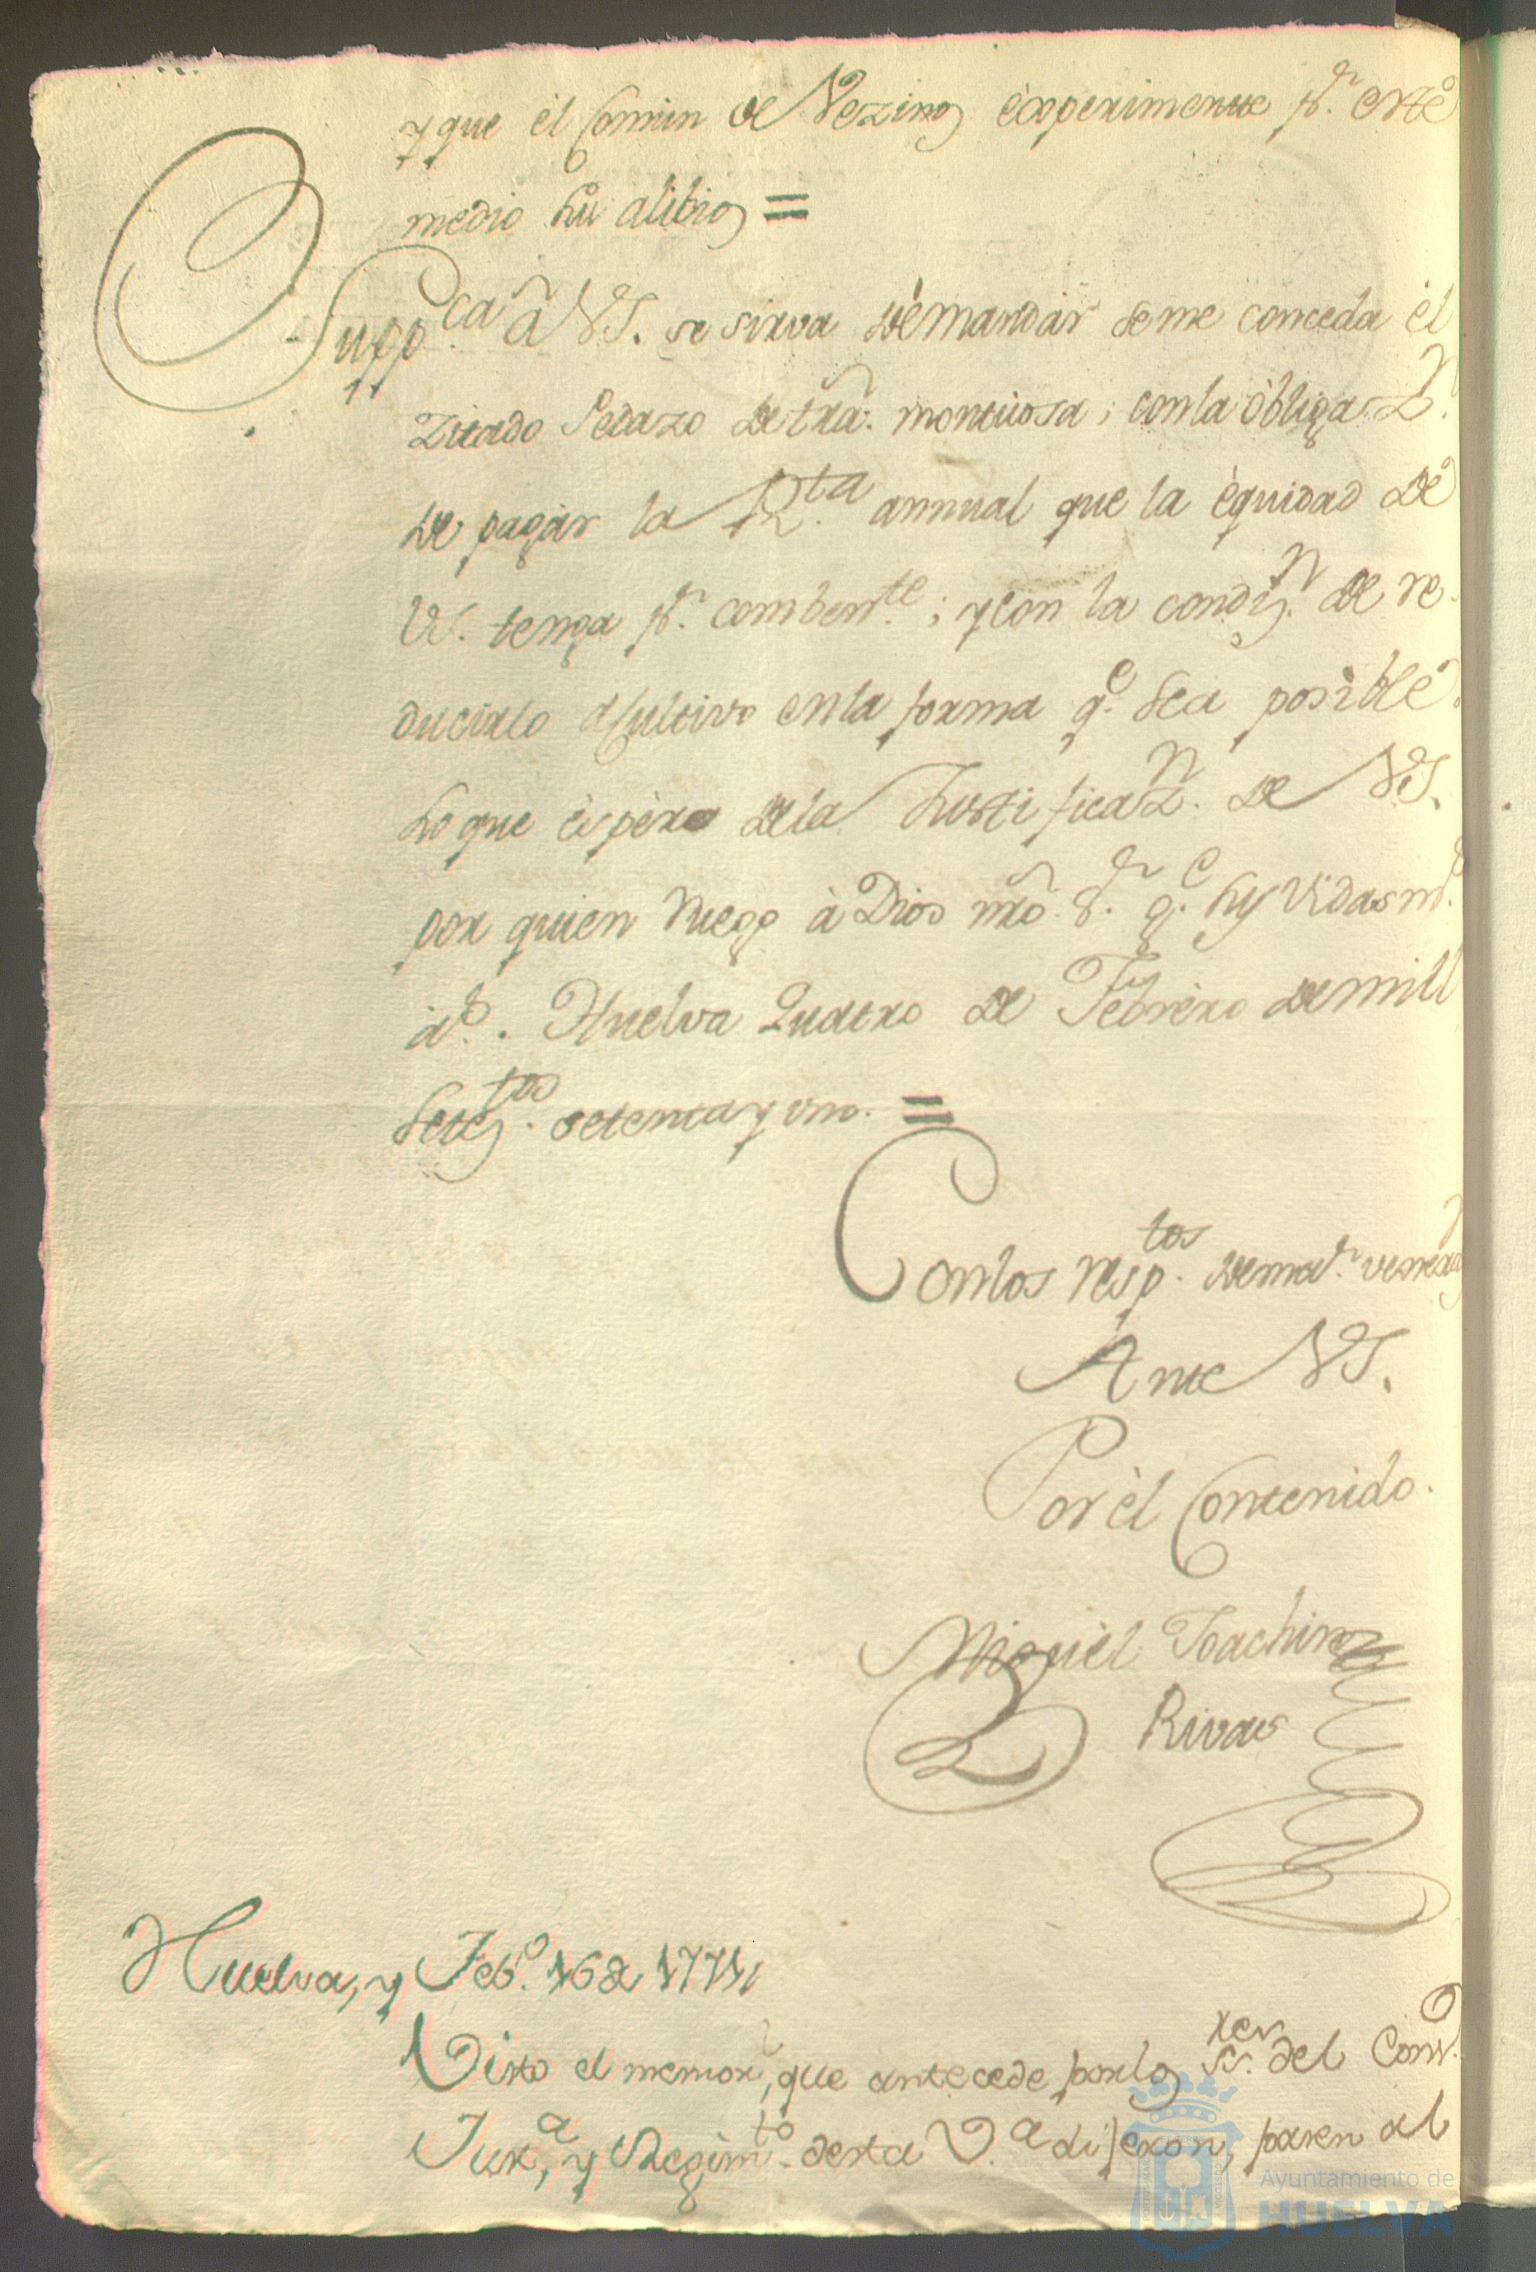 y que èl Comun de Vezinos èxperimente pr. este
medio Su alibio =
Suppca. à VS. se sirva de mandar se me conceda èl
zitado Pedazo de trã. montuosa; con la òbligazn.
de pagàr la Rta. annual que la èquidad de
VS. tenga pr. combente.; y con la condizn. de re-
ducirlo a Cultivo en la forma qe. Sea posible.
Lo que èspèro de la Justificazn. de VS.
por quien Ruego à Dios nrõ. Sr. ge. Sus Vidas ms.
às. Huelva Quatro de Febrèro de mill
Setezs.tos setenta y uno. =
Con los resptos. de mar. venerazn
Ante VS.
Por èl Contenido.
Miguèl Joachin
Rivas
Huelva, y Febo. 16 de 1771,
Visto el memorl, que antecede por los Sres. del Conso.
Justa, y Regimto. desta Va. dijeron, pasen al
Ayuntamiento de
HUELVA